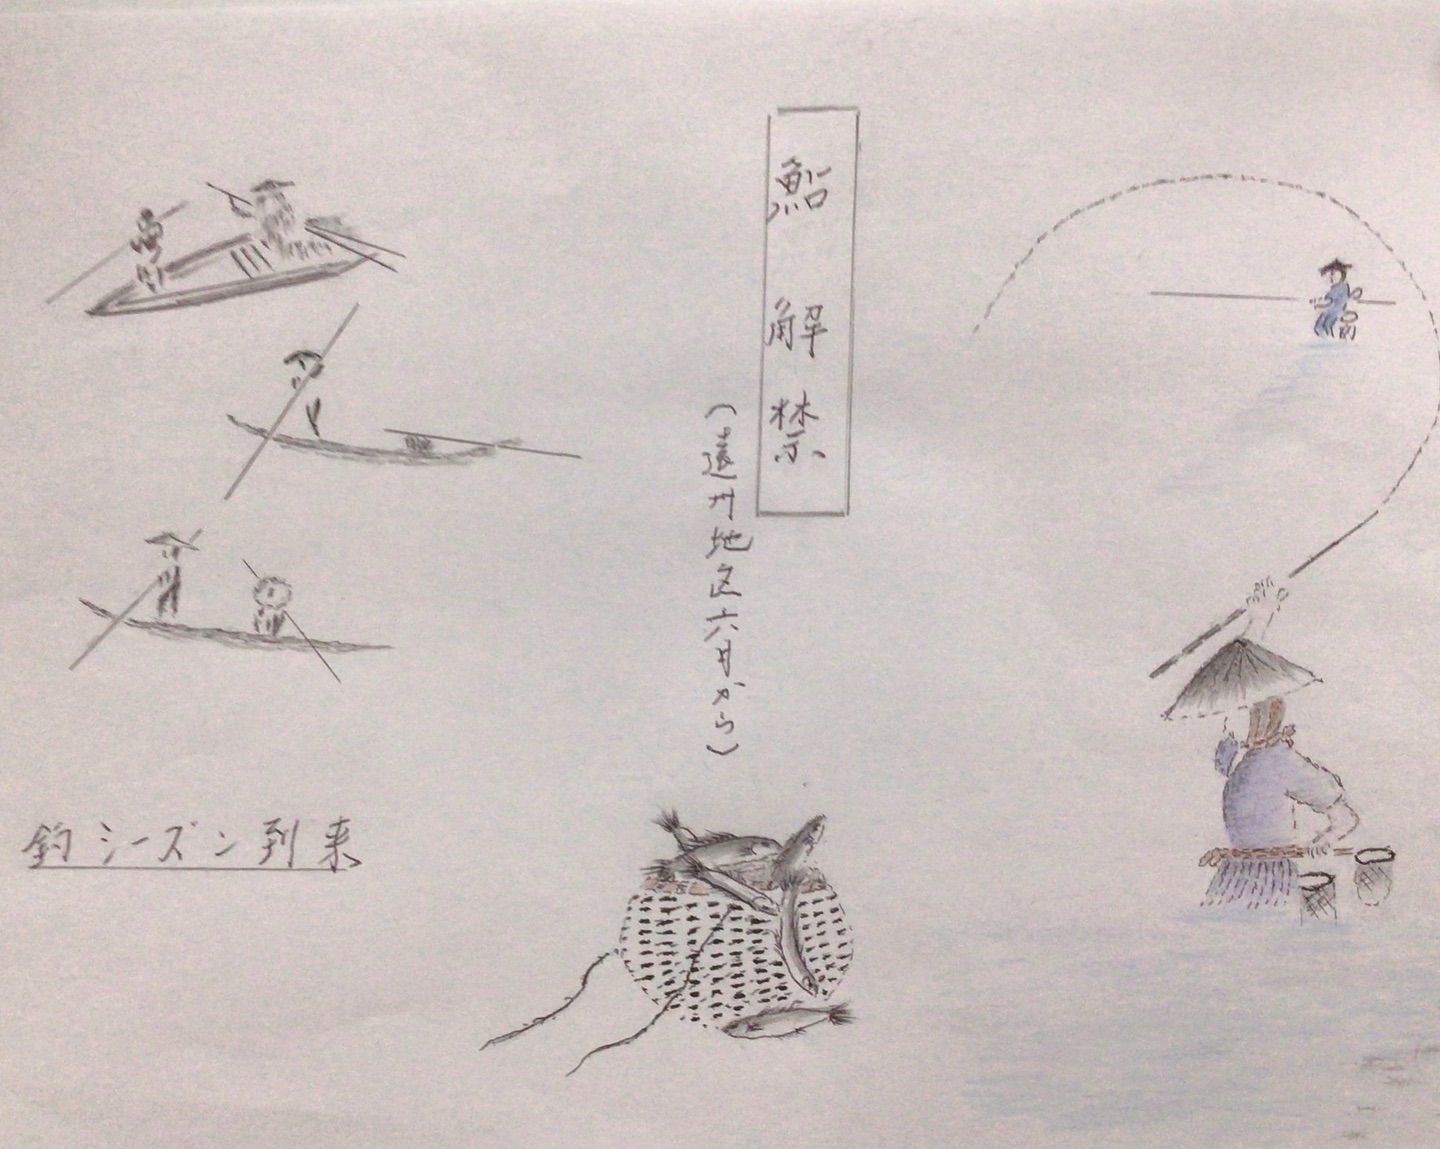 鮎解禁
(遠州地区六月から)
釣シーズン到来